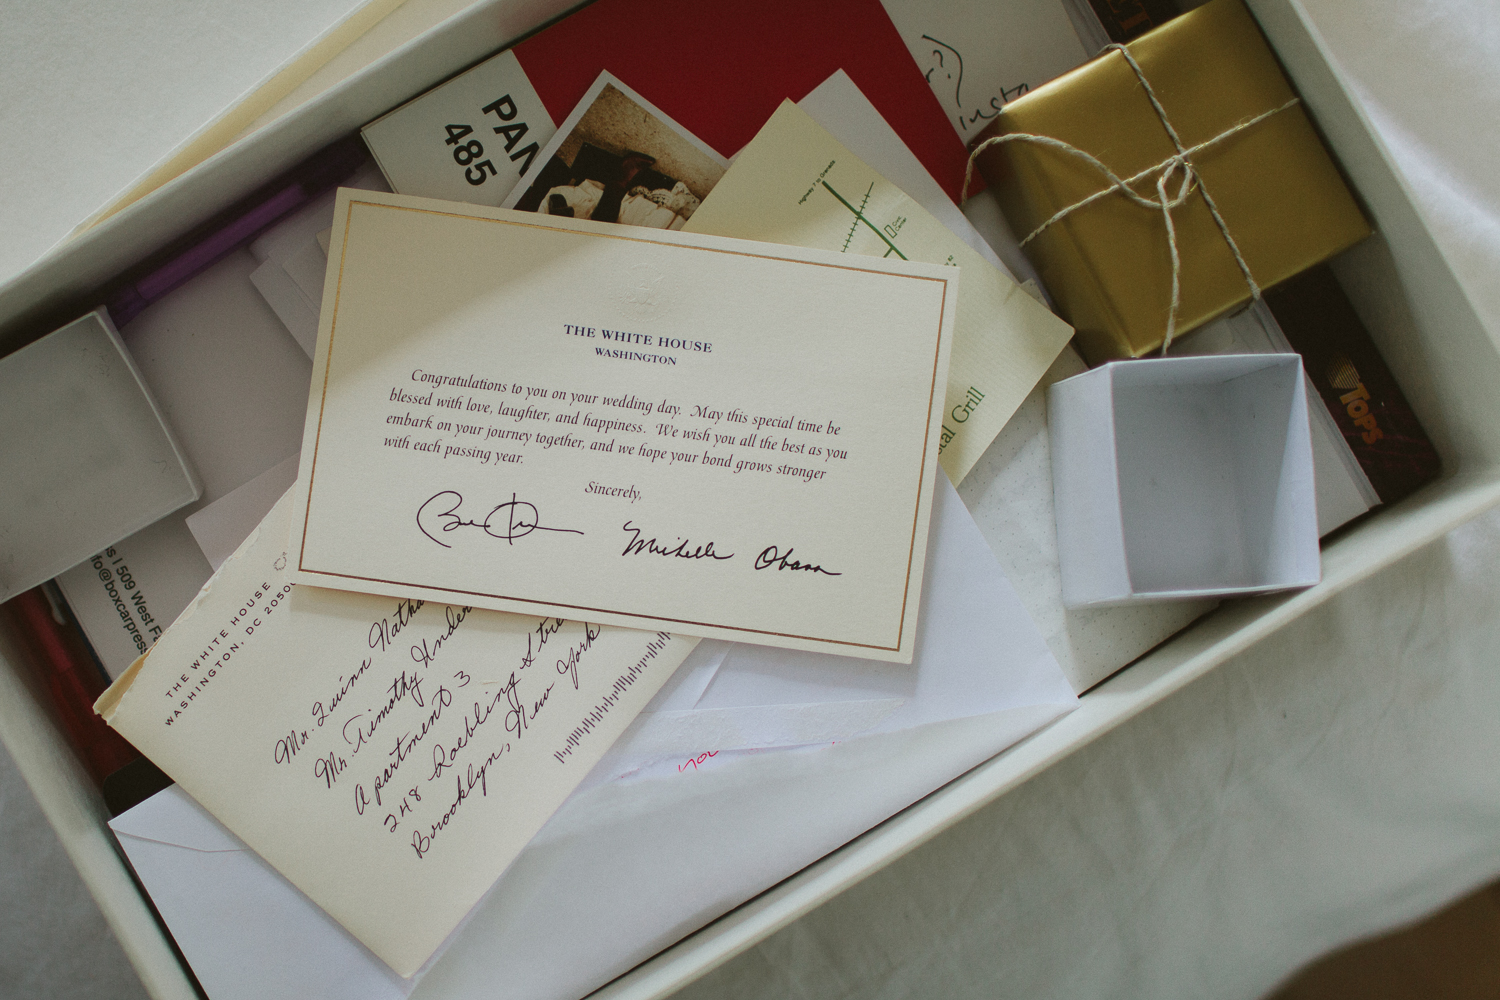 PAN
485
r?)
Highway 1 to Granada
Civic
Center
THE WHITE HOUSE
WASHINGTON
Congratulations to you on your wedding day. May this special time be
blessed with love, laughter, and happiness. We wish you all the best as you
embark on your journey together, and we hope your bond grows stronger
with each passing year.
Sincerely,
Michelle Obama
tal Grill
TOPS
s | 509 West F
fo@boxcarpress
THE WHITE HOUSE
WASHINGTON, DC 20500
Mr. Quinn Natha
Mr. Timothy Hunder
Apartment 3
248 Roebling Stre
Brooklyn, New York
you